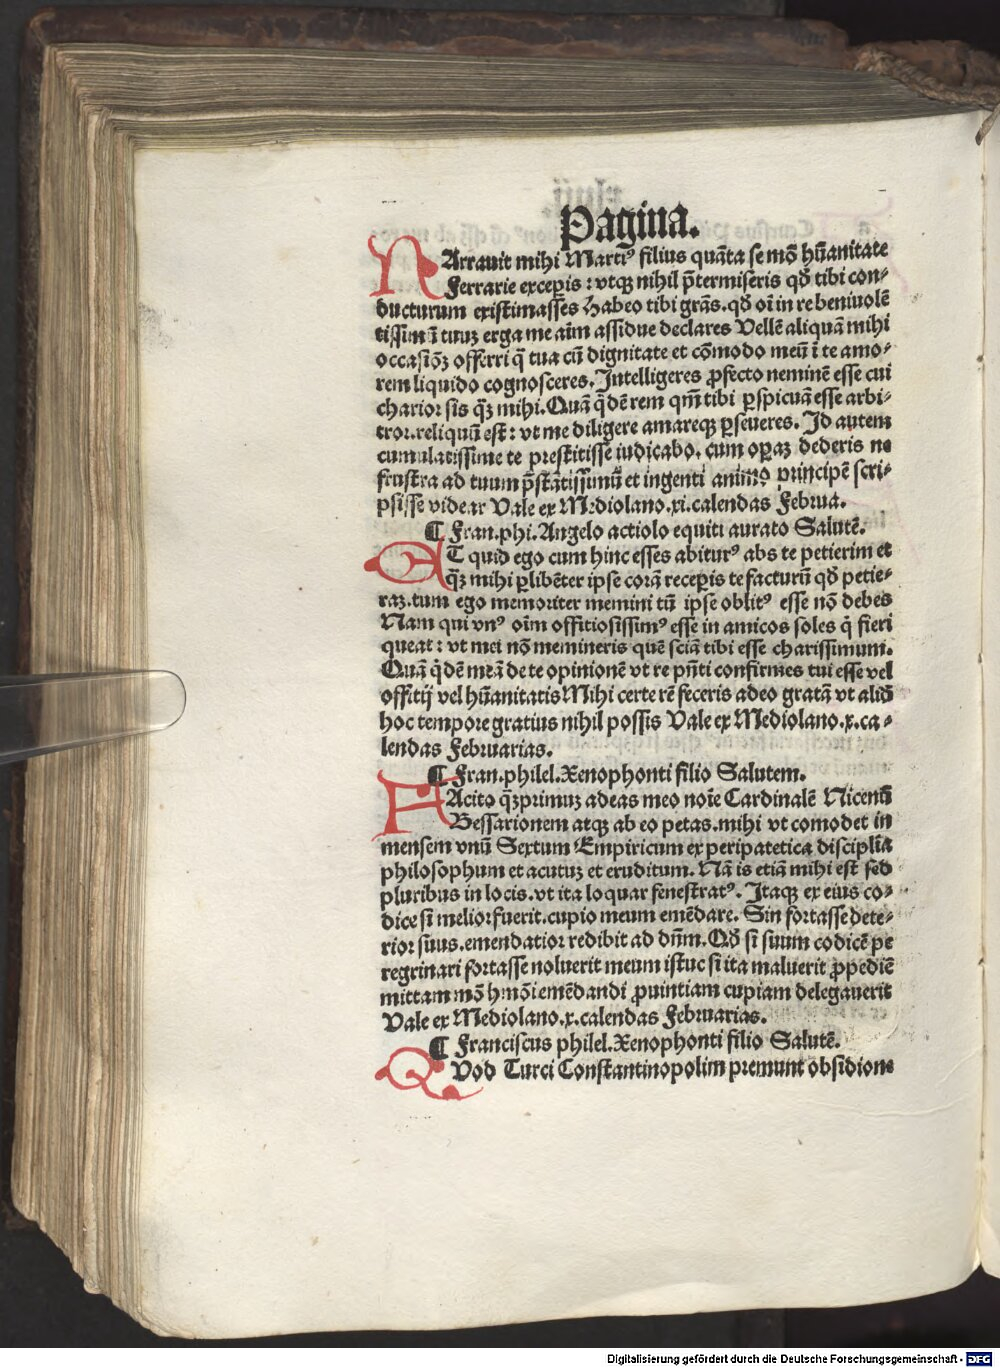 Pagina.
NArrauit mihi Marti⁹ filius quāta se mō hūanitate
Ferrarie exceperis : vtqꝫ nihil p̄termiseris qđ tibi con⸗
ducturum existimasses Habeo tibi grās. qđ oī in re beniuolē
tissimū ī tuuꝫ erga me aīm assidue declares Vellē aliquā mihi
occasiōꝫ offerri q̄ tua cū dignitate et cōmodo meū ī te amo⸗
rem liquido cognosceres. Intelligeres ꝓfecto neminē esse cui
charior sis q̄ꝫ mihi. Quā q̄dē rem qm̄ tibi ꝑspicuā esse arbi⸗
tror. reliquū est : vt me diligere amareqꝫ ꝑseueres. Id autem
cumulatissime te prestitisse iudicabo. cum oꝑaꝫ dederis ne
frustra ad tuum p̄stātissimū et ingenti animo principē scri⸗
psisse videar Vale ex Mediolano. xi. calendas Februa.
¶ Fran. phi. Angelo actiolo equiti aurato Salutē.
ET quid ego cum hinc esses abitur⁹ abs te petierim et
q̄ꝫ mihi ꝑlibēter ipse corā receperis te facturū qđ petie⸗
raꝫ. tum ego memoriter memini tū ipse oblit⁹ esse nō debes
Nam qui vn⁹ oīm offitiosissim⁹ esse in amicos soles q̄ fieri
queat : vt mei nō memineris quē sciā tibi esse charissimum.
Quā q̄dē meā de te opinionē vt re pn̄ti confirmes tui esse vel
offitij vel hūanitatis Mihi certe rē feceris adeo gratā vt aliđ
hoc tempore gratius nihil possis Vale ex Mediolano. x. ca⸗
lendas Februarias.
¶ Fran. philel. Xenophonti filio Salutem.
FAcito q̄ꝫprimuꝫ adeas meo noīe Cardinalē Nicenū
Bessarionem atqꝫ ab eo petas. mihi vt comodet in
mensem vnū Sextum Empiricum ex peripatetica disciplīa
philosophum et acutuꝫ et eruditum. Nā is etiā mihi est sed
pluribus in locis. vt ita loquar fenestrat⁹. Itaqꝫ ex eius co⸗
dice si melior fuerit. cupio meum emēdare. Sin fortasse dete⸗
rior suus. emendatior redibit ad dn̄m. Qđ si suum codicē pe
regrinari fortasse noluerit meum istuc si ita maluerit ꝓpediē
mittam mō hmōi emēdandi ꝓuintiam cupiam delegauerit
Vale ex Mediolano. x. calendas Februarias.
¶ Franciscus philel. Xenophonti filio Salutē.
QVod Turci Constantinopolim premunt obsidione
Digitalisierung gefördert durch die Deutsche Forschungsgemeinschaft - DFG